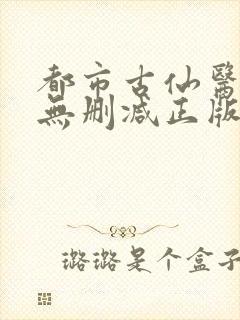 都市古仙醫
無刪减正版
璐璐是个盒子